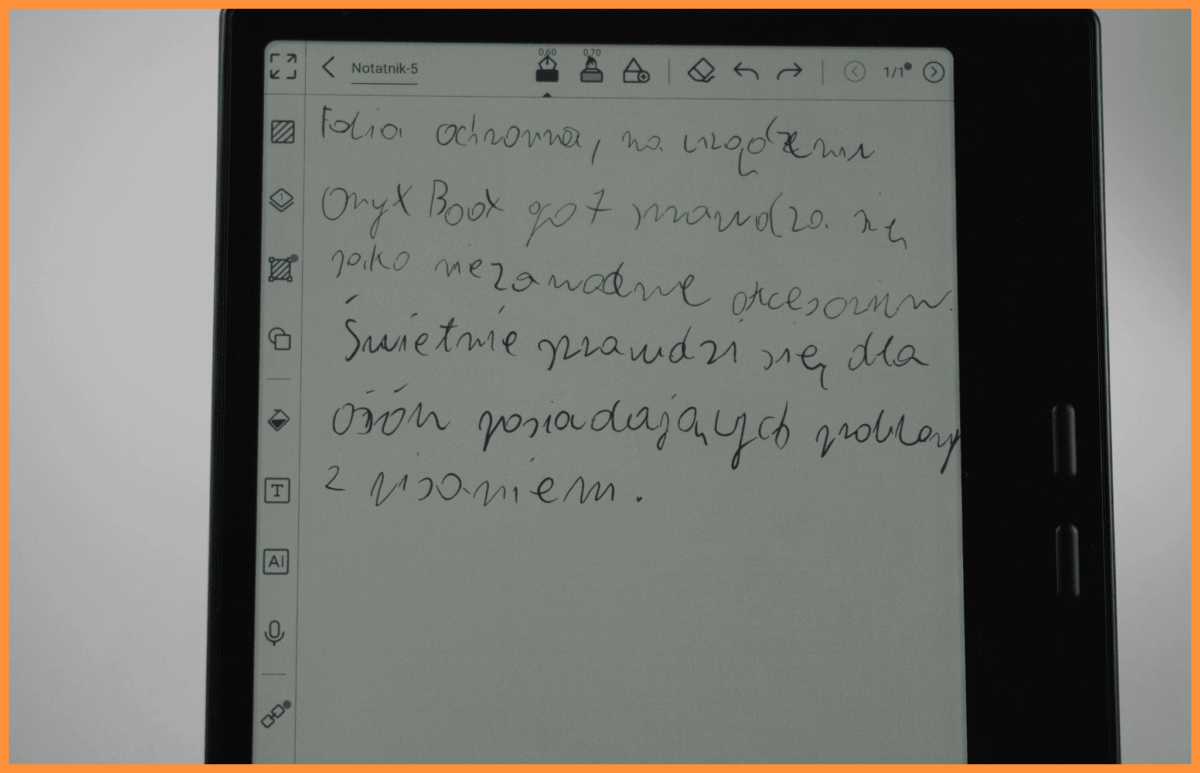 0.60 0.70
Notatnik-5 1/1
Folia ochronna, na urządzeniu
Onyx Boox go 7 sprawdza się
jako niezawodne akcesorium.
Świetnie sprawdzi się dla
osób posiadających problemy
z pisaniem.
T
AI